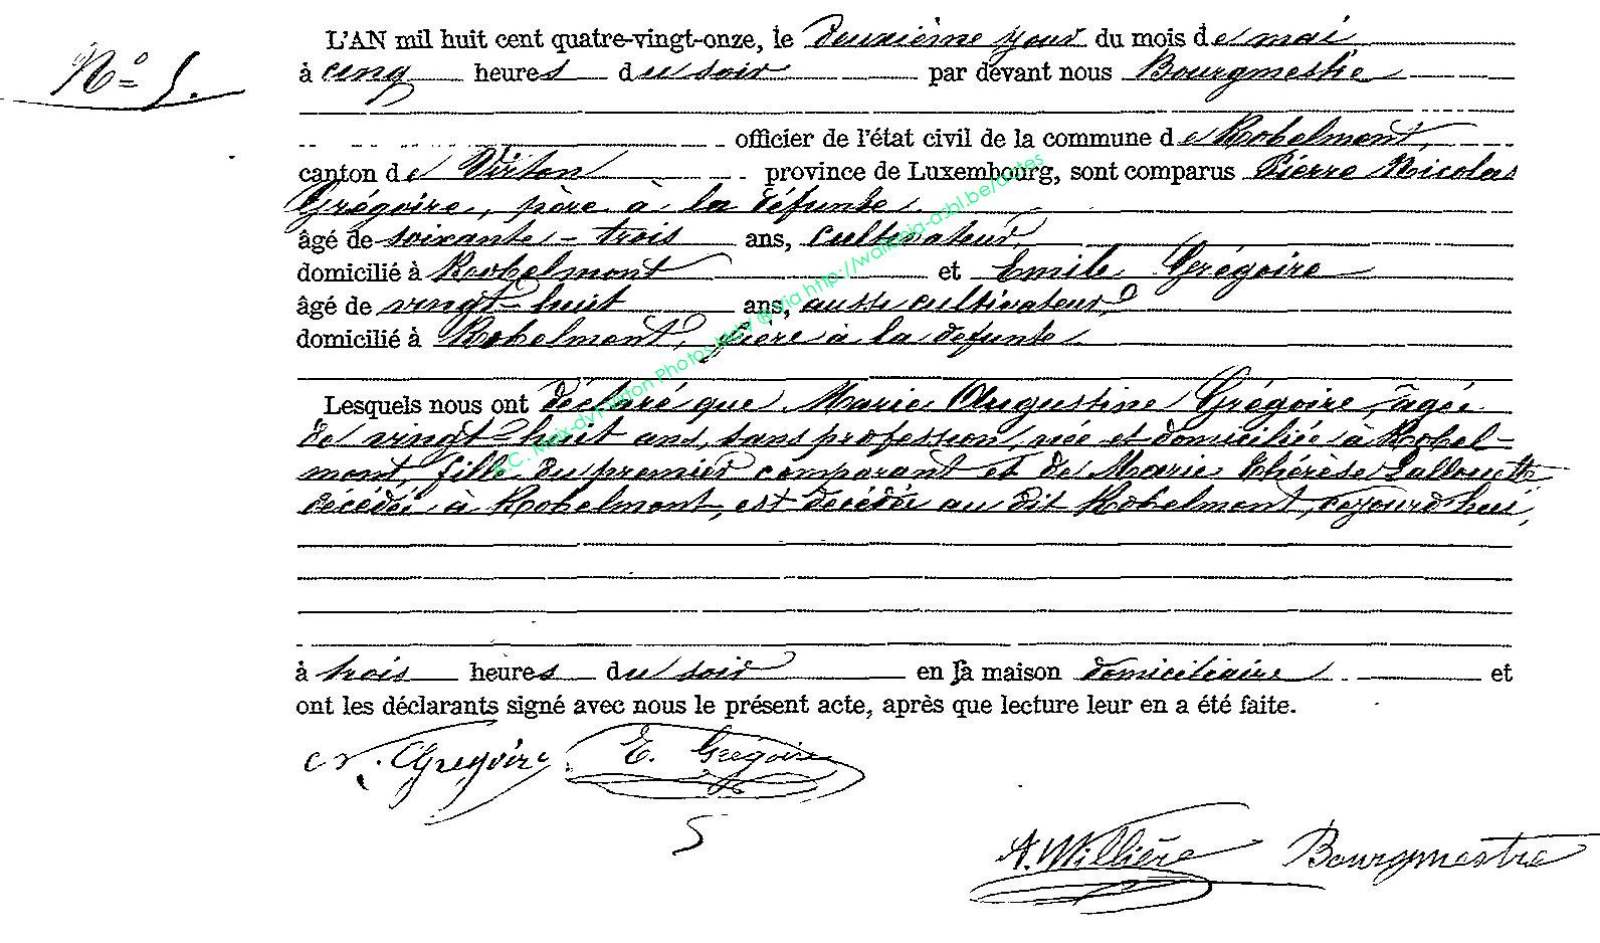 N° 5.
L'AN mil huit cent quatre-vingt-onze, le deuxième jour du mois de mai
à cinq heures du soir par devant nous Bourgmestre
officier de l'état civil de la commune de Robelmont,
canton de Virton province de Luxembourg, sont comparus Pierre Nicolas
Grégoire, père à la défunte
âgé de soixante-trois ans, cultivateur,
domicilié à Robelmont et Emile Grégoire
âgé de vingt-huit ans, aussi cultivateur,
domicilié à Robelmont, frère à la defunte.
Lesquels nous ont déclaré que Marie Augustine Grégoire, âgée
de vingt-huit ans, sans profession, née et domiciliée à Robel-
mont, fille du premier comparant et de Marie Thérèse Lallouette
décédée à Robelmont, est décédée au dit Robelmont, cejourd'hui,
à trois heures du soir en sa maison domiciliaire et
ont les déclarants signé avec nous le présent acte, après que lecture leur en a été faite.
N. Grégoire E. Grégoire
5
A. Willière Bourgmestre
E.C. Meix-dvt-Virton Photos via http://wallonia-asbl.be/actes